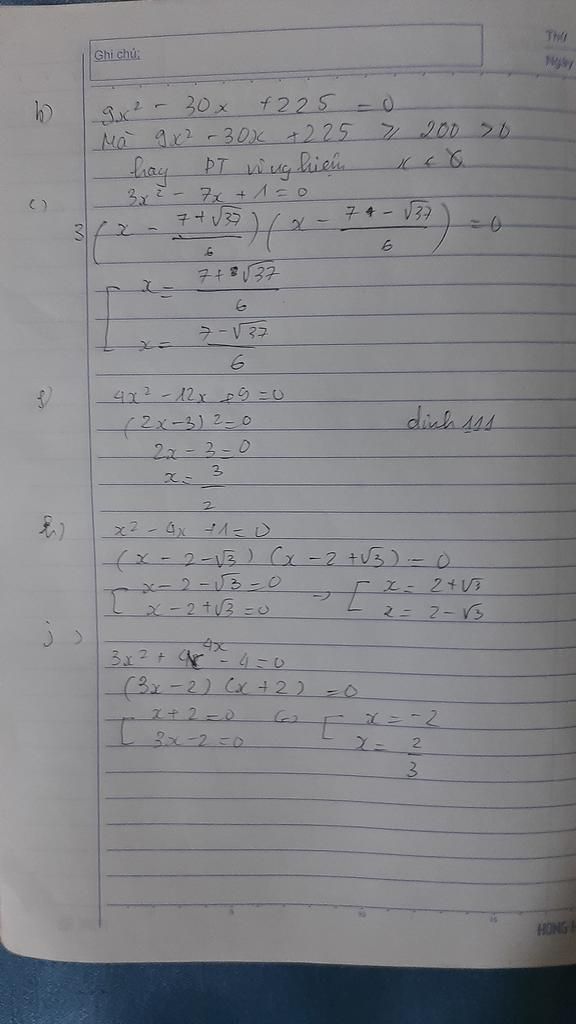 Ghi chú:
Thứ
Ngày
b) 9x² - 30x + 225 = 0
Mà 9x² - 30x + 225 ≥ 200 > 0
hay PT vô nghiệm
c) 3x² - 7x + 1 = 0
3 (x - (7+√37)/6) (x - (7 - √37)/6) = 0
[ x = (7+√37)/6
x = (7-√37)/6
4x² - 12x + 9 = 0
(2x-3)2=0
2x - 3 = 0
x = 3/2
dinh 111
x² - 4x + 1 = 0
(x - 2 - √3) (x - 2 + √3) = 0
[ x - 2 - √3 = 0 → [ x = 2 + √3
x - 2 + √3 = 0 x = 2 - √3
j)
3x² + 4x - 4 = 0
(3x - 2) (x + 2) = 0
[ x + 2 = 0 ⇔ [ x = -2
3x - 2 = 0 x = 2/3
HONG H